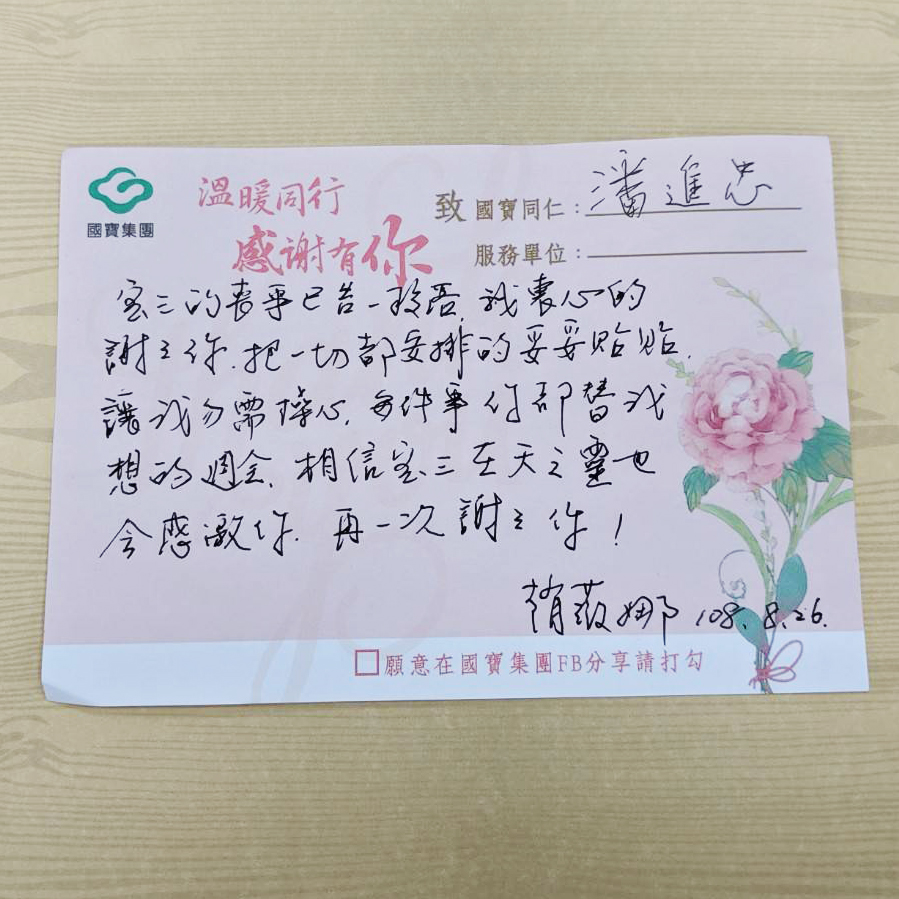 國寶集團
溫暖同行
感謝有你
致 國寶同仁：潘進忠
服務單位：
宝三的喪事已告一段落，我衷心的
謝謝你，把一切都安排的妥妥貼貼，
讓我勿需操心，每件事你都替我
想的週全，相信宝三在天之靈也
会感激你，再一次謝謝你！
趙薇娜 108.8.26.
□願意在國寶集團FB分享請打勾